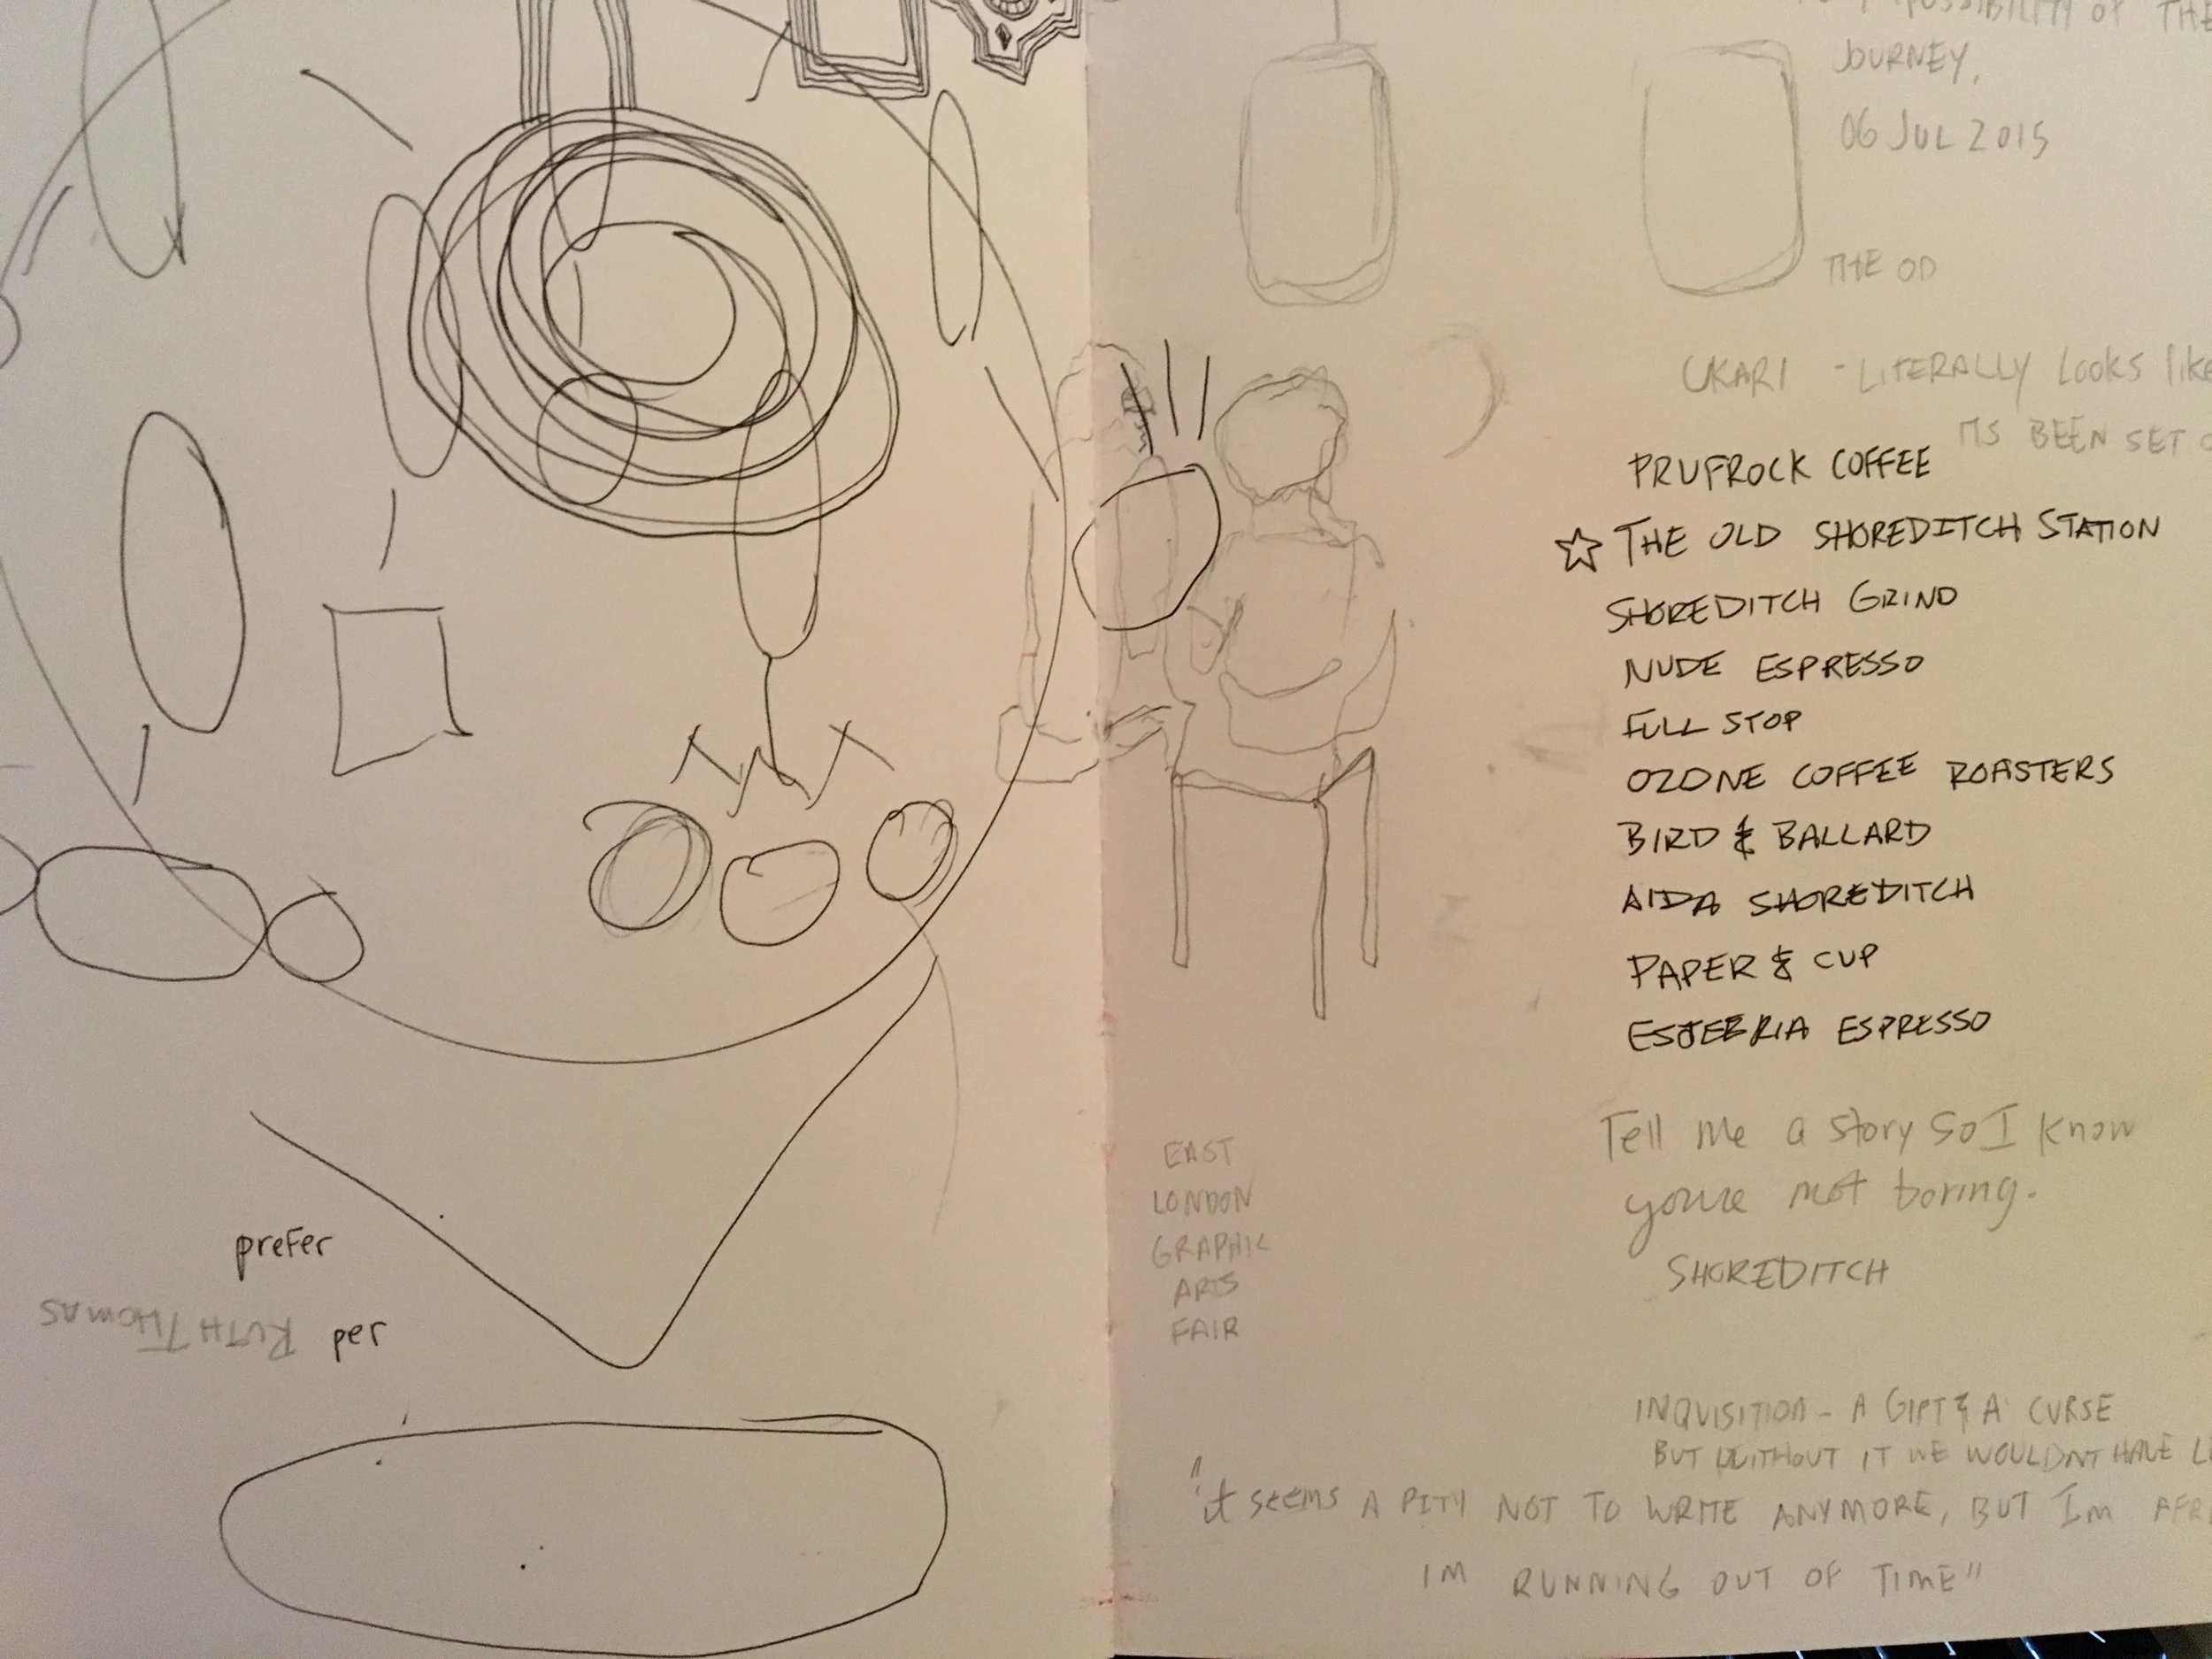 prefer
RUTH THOMAS
per
POSSIBILITY OF THE
JOURNEY,
06 JUL 2015
THE OD
UKARI - LITERALLY LOOKS like
ITS BEEN SET
PRUFROCK COFFEE
☆ THE OLD SHOREDITCH STATION
SHOREDITCH GRIND
NUDE ESPRESSO
FULL STOP
OZONE COFFEE ROASTERS
BIRD & BALLARD
AIDA SHOREDITCH
PAPER & CUP
ESTEBRIA ESPRESSO
EAST
LONDON
GRAPHIC
ARTS
FAIR
Tell me a story so I know
youre not boring.
SHOREDITCH
INQUISITION - A GIFT & A CURSE
BUT WITHOUT IT WE WOULDNT HAVE
"it seems A PITY NOT TO WRITE ANYMORE, BUT Im
IM RUNNING OUT OF TIME"